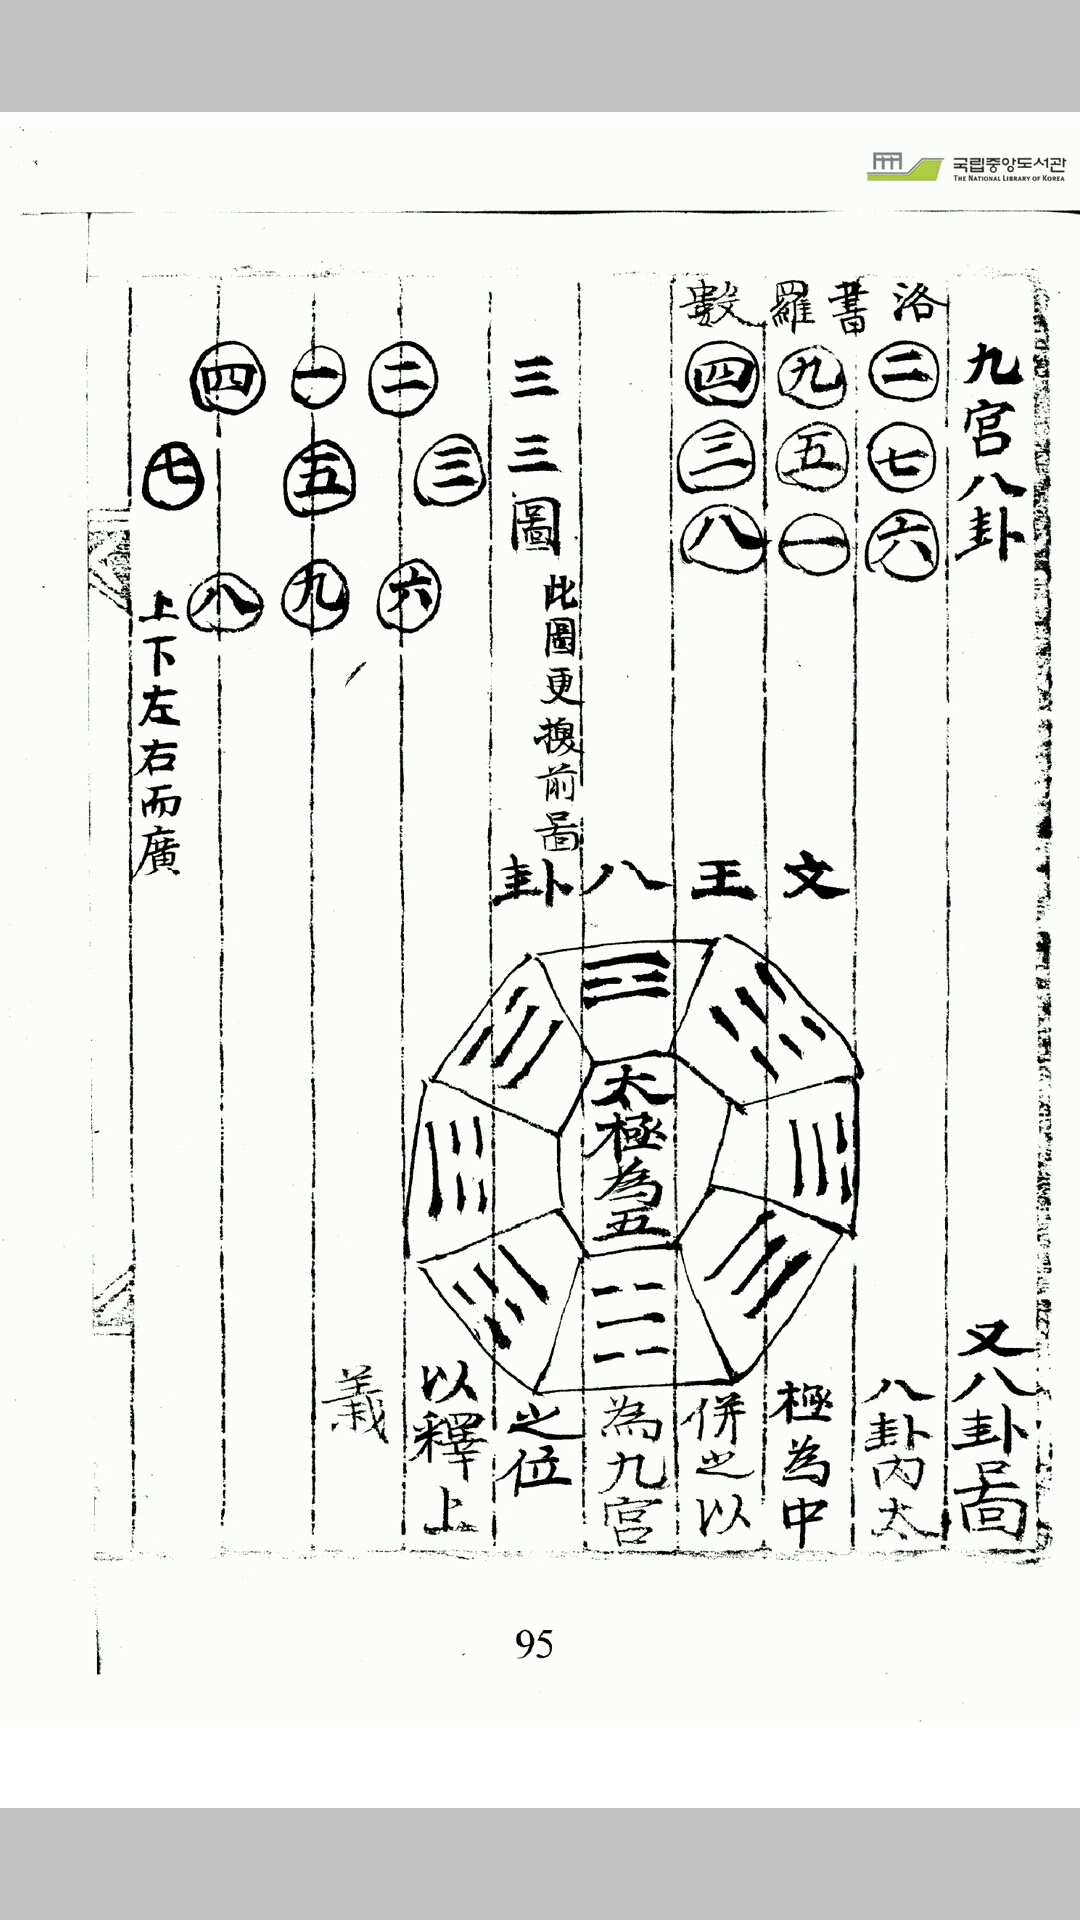 국립중앙도서관
THE NATIONAL LIBRARY OF KOREA
九宮八卦
洛書羅數
二 七 六
九 五 一
四 三 八
三三圖
此圖更換前啚
二 三 六
一 五 九
四 七 八
上下左右而廣
文王八卦
太極為五
又八卦啚
八卦內太
極為中
併之以
為九宮
之位
以釋上
義
95